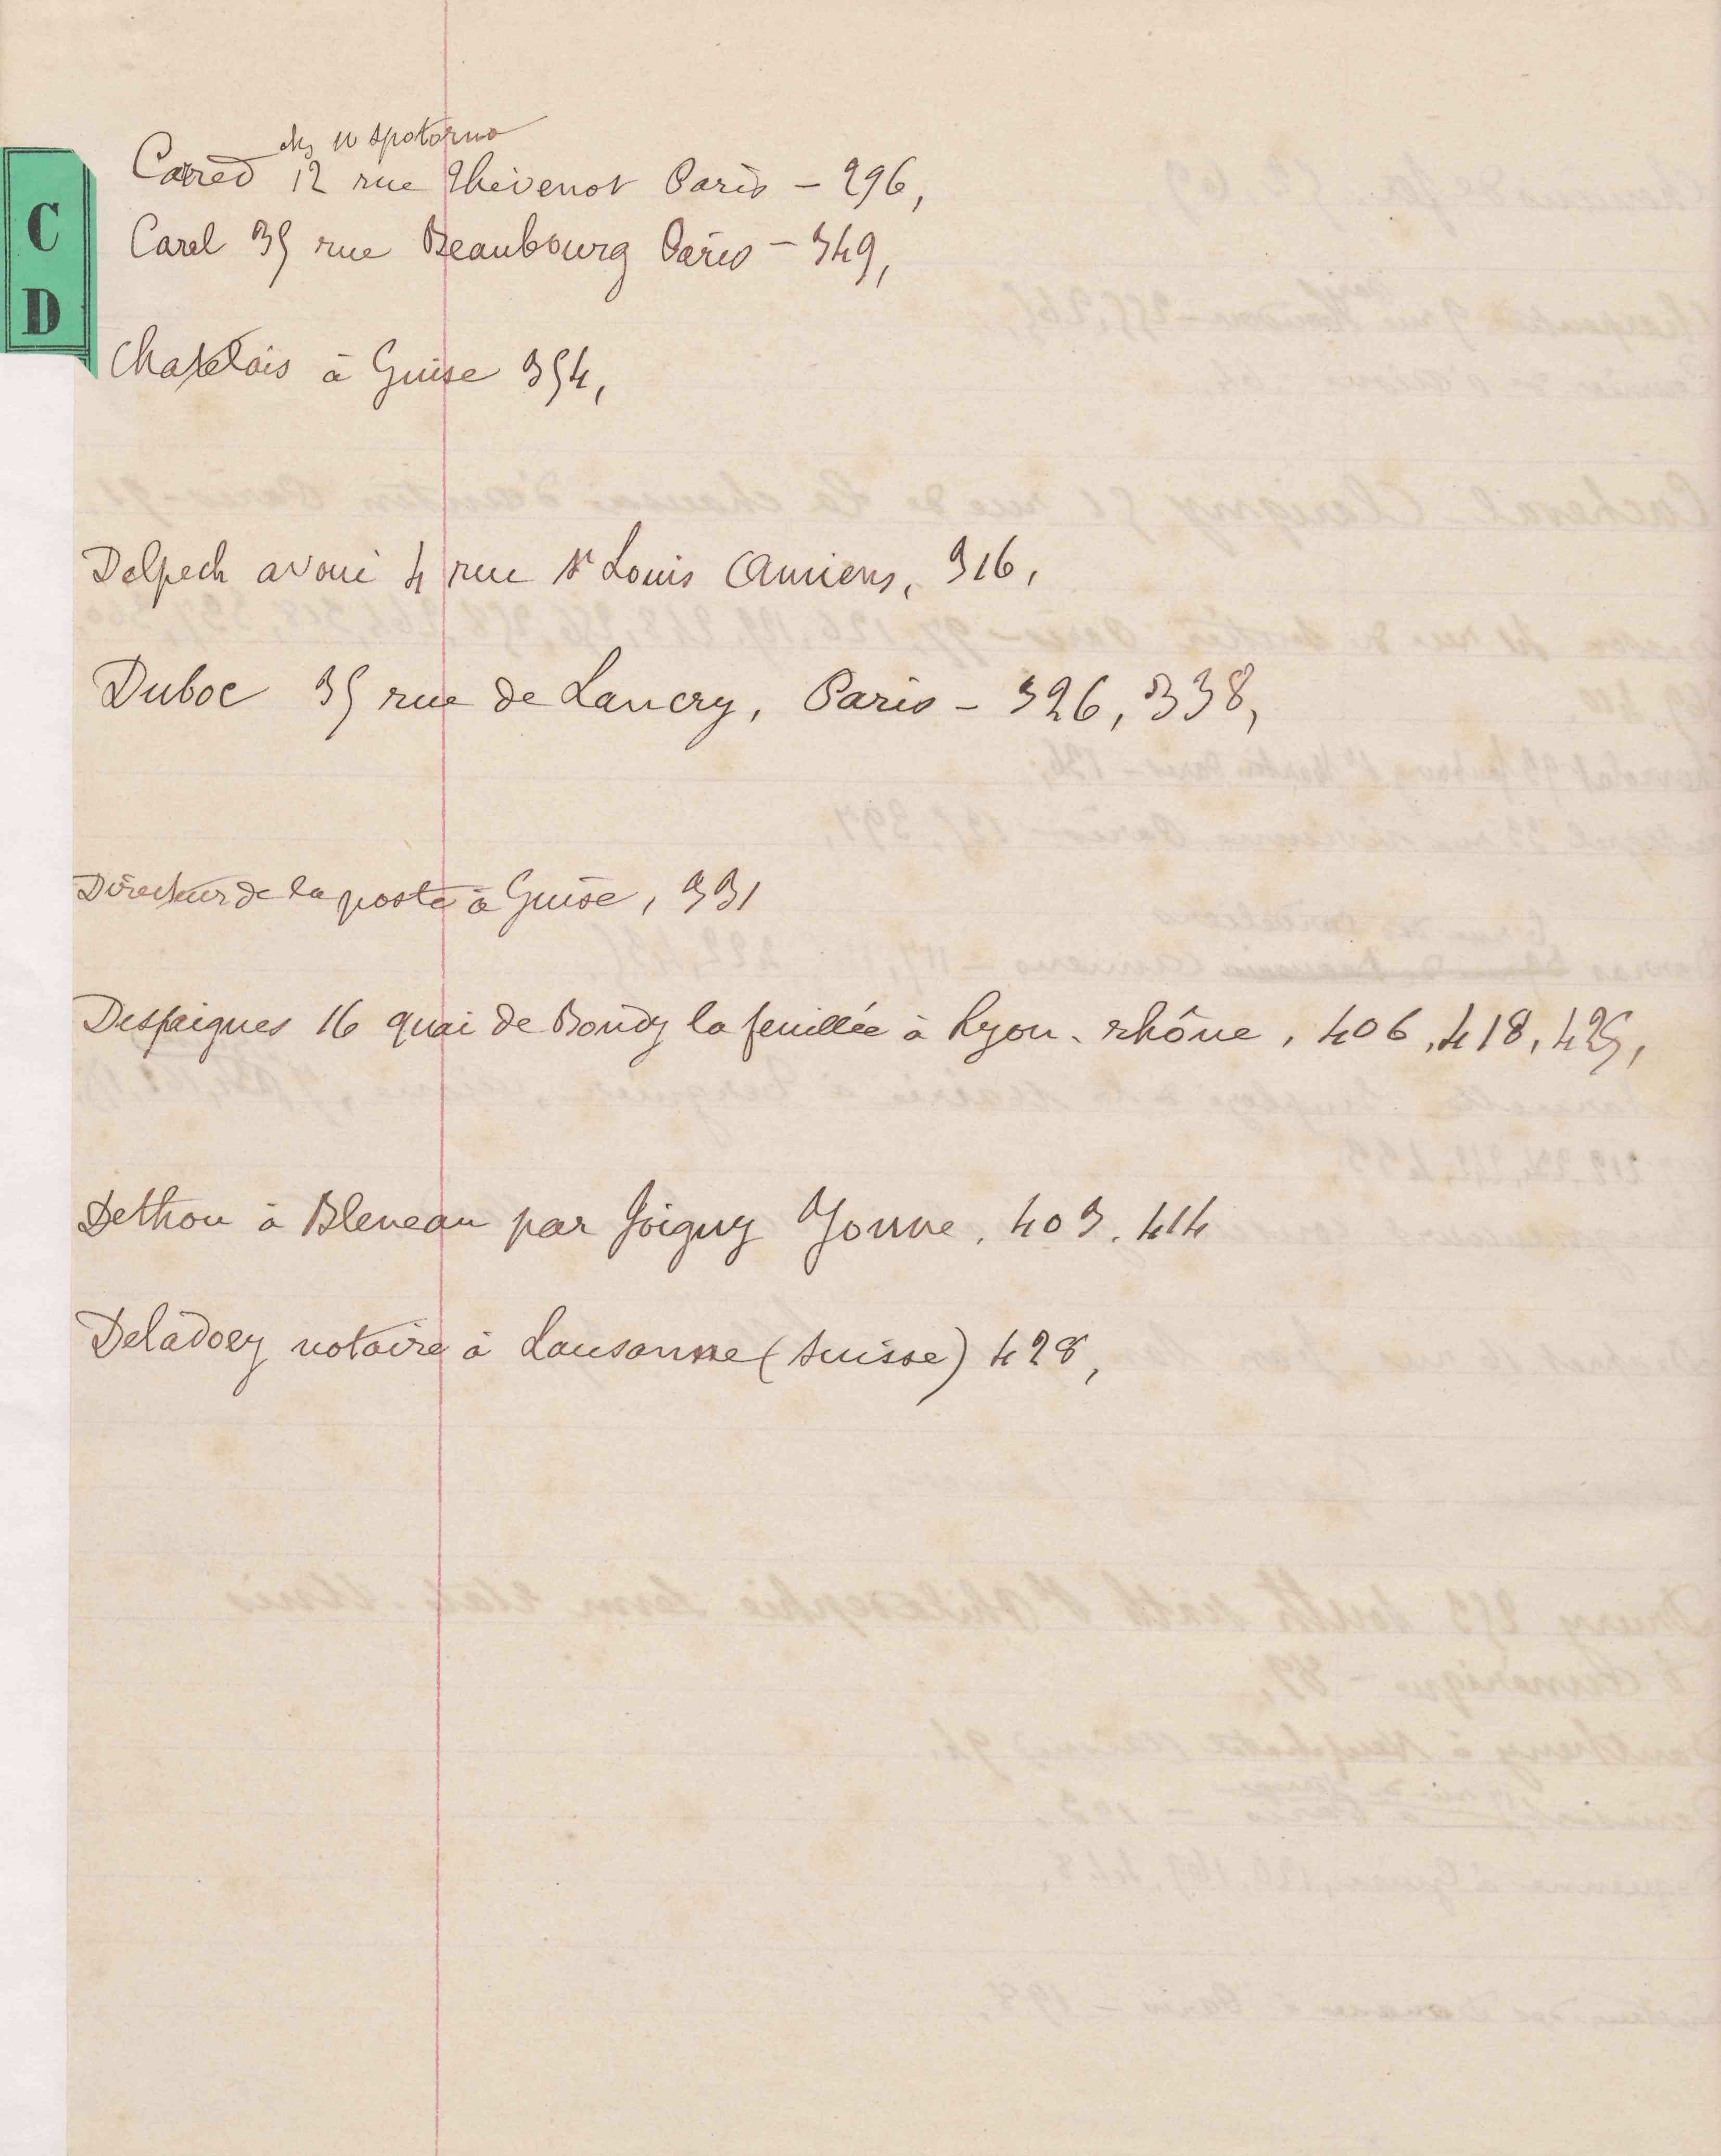 C
D
chez M Spotorno
Carred 12 rue Thévenot Paris – 296,
Carel 35 rue Beaubourg Paris – 349,
Chatelais à Guise 354,
Delpech avoué 4 rue St Louis Amiens, 316,
Duboc 35 rue de Lancry, Paris – 326, 338,
Directeur de la poste à Guise, 331
Despaignes 16 quai de Bondy la feuillée à Lyon. rhône, 406, 418, 425,
Dethou à Bleneau par Joigny Yonne, 403, 414
Deladoey notaire à Lausanne (Suisse) 428,